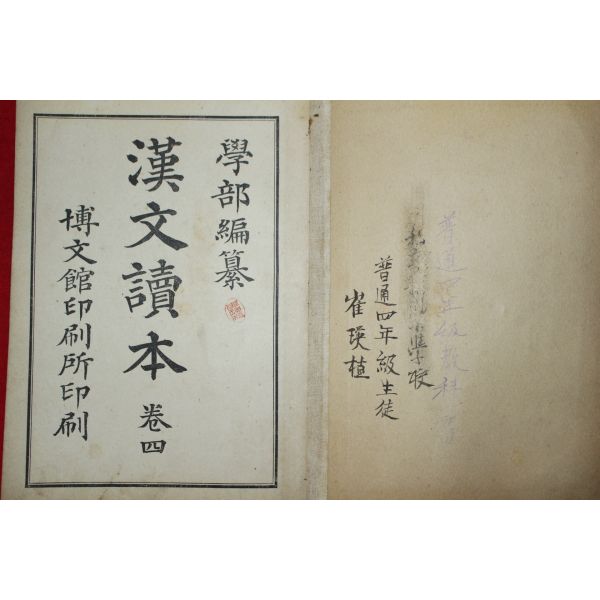 普通四年級敎科書
學校
普通四年級生徒
崔瑛植
學部編纂
漢文讀本 卷四
博文館印刷所印刷